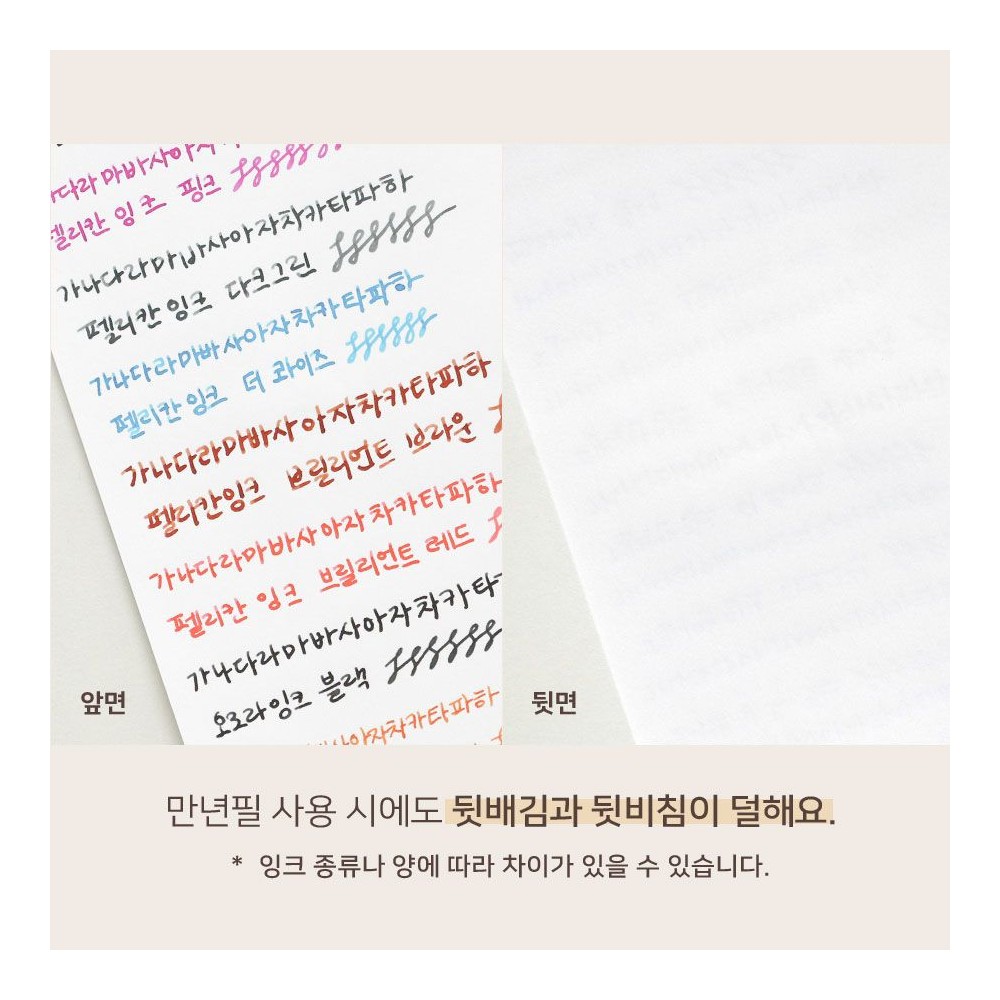 다라마바사아자
펠리칸 잉크 핑크
가나다라마바사아자차카타파하
펠리칸잉크 다크그린
가나다라마바사아자차카타파하
펠리칸잉크 더 콰이즈
가나다라마바사아자차카타파하
펠리칸잉크 브릴리언트 브라운
가나다라마바사아자차카타파하
펠리칸 잉크 브릴리언트 레드
가나다라마바사아자차카타
오로라잉크 블랙
바사아자차카타파하
앞면
뒷면
만년필 사용 시에도 뒷배김과 뒷비침이 덜해요.
* 잉크 종류나 양에 따라 차이가 있을 수 있습니다.